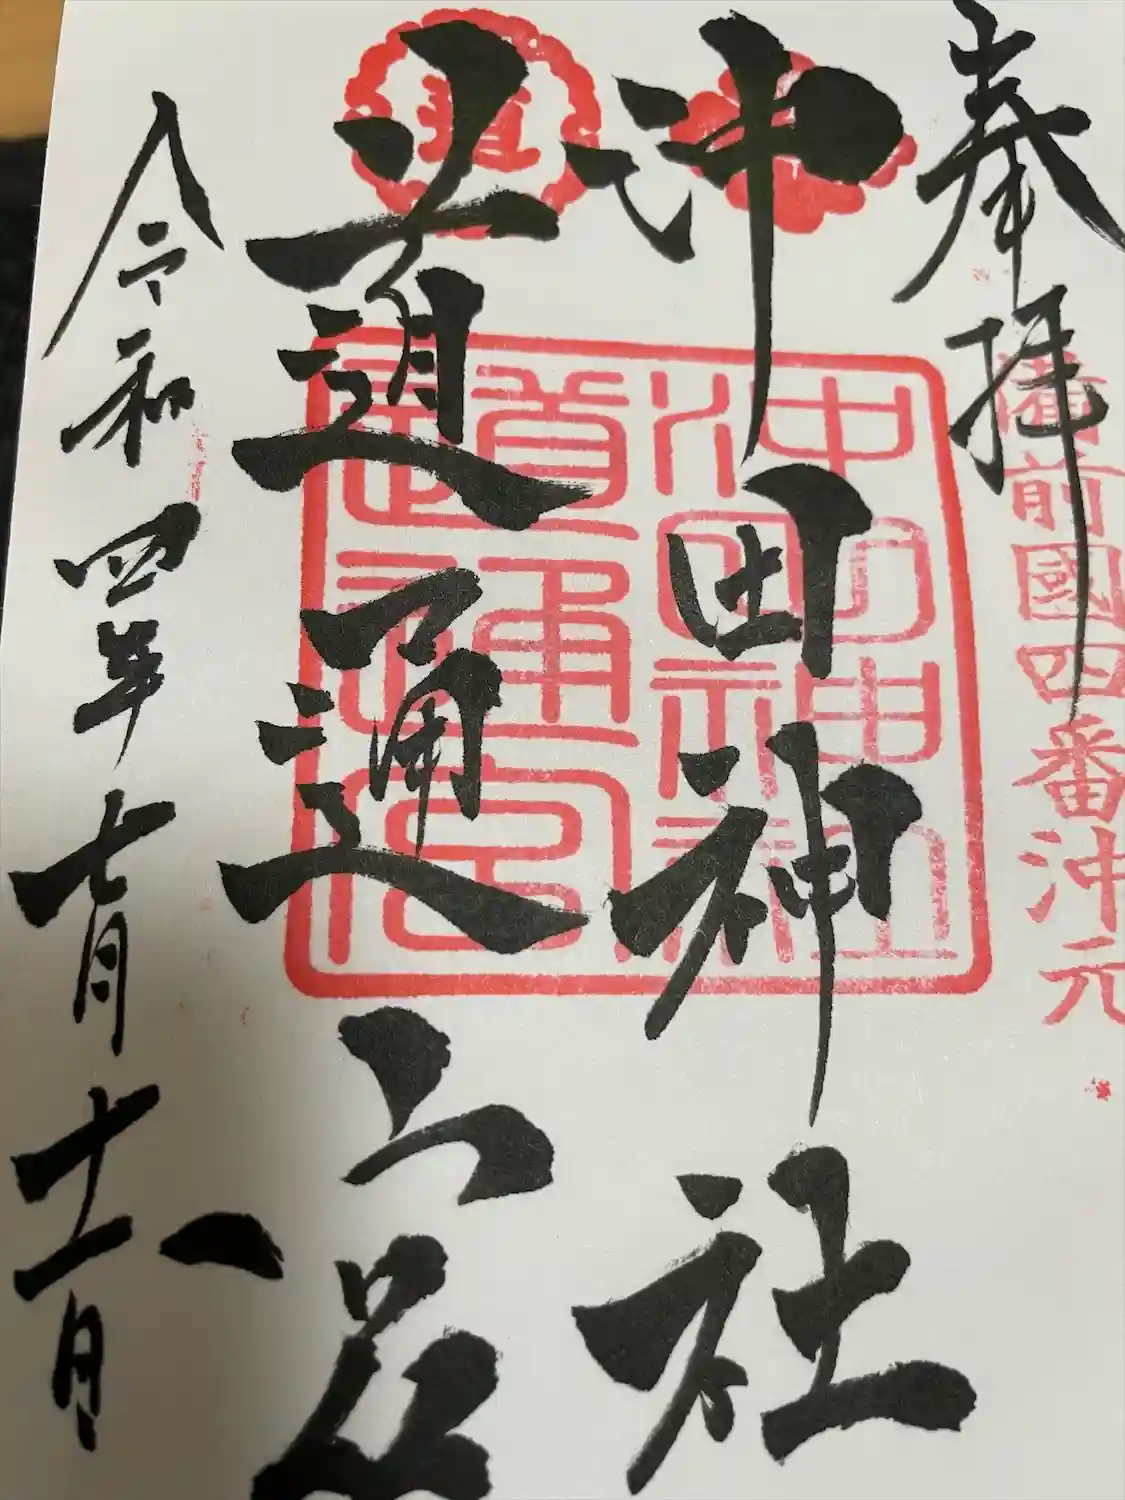 奉拝
備前國四番沖元
沖田神社
道通宮
令和四年七月十八日
沖田神社
道通宮